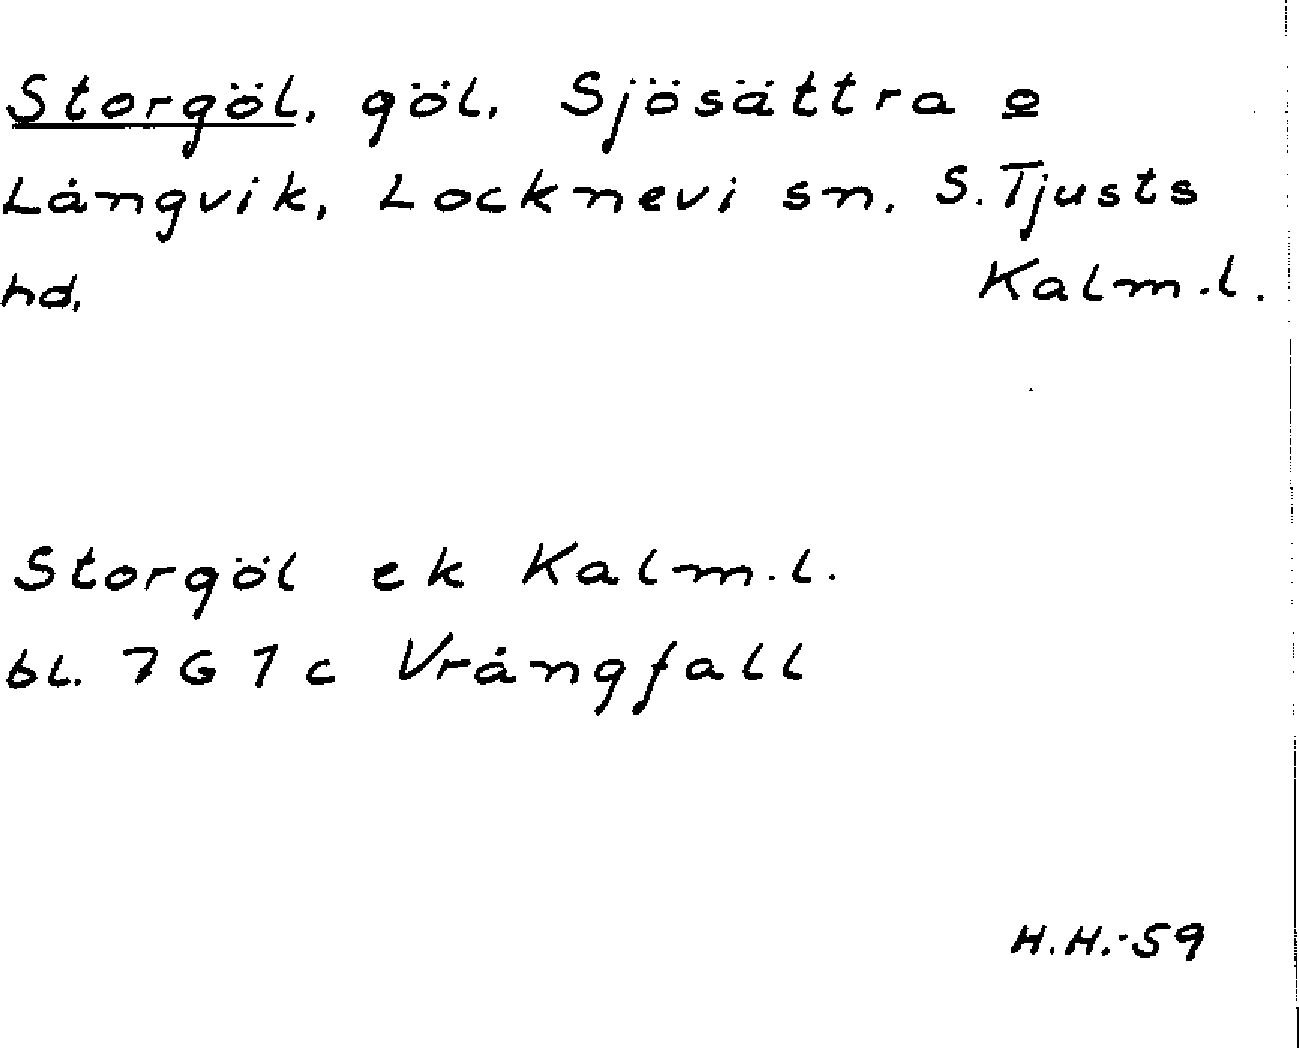 Storgöl, göl, Sjösättra o
Långvik, Locknevi sn, S. Tjusts
hd, Kalm.l.
Storgöl ek Kalm.l.
bl. 7G 1c Vrångfall
H.H.-59